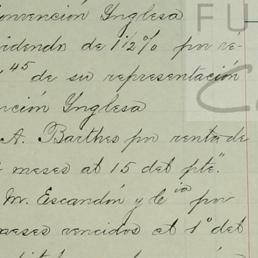 onvención Ynglesa
idendo de 1 1/2% por re-
" 45 de su representación
nción Ynglesa
A. Barthes por renta de
meses al 15 del pte".
M. Escandón y Cia por
meses vencidos al 1º del
FU
C